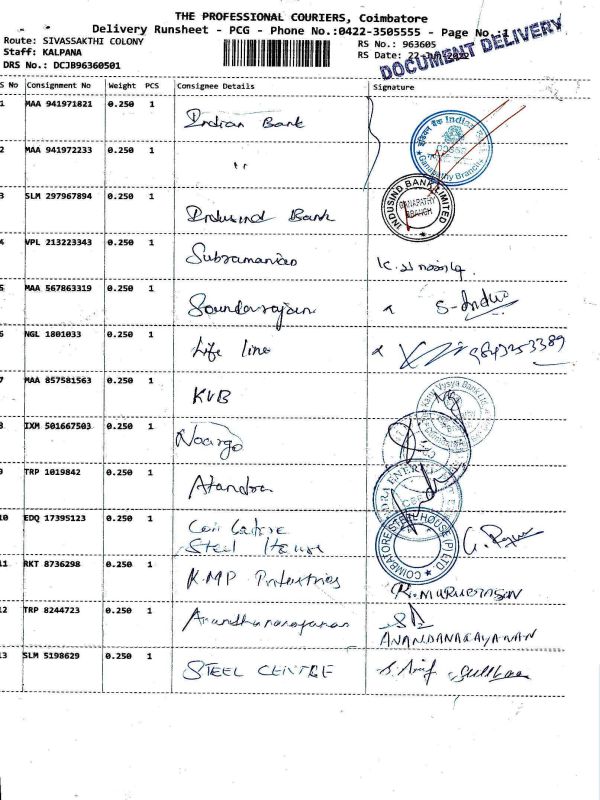 THE PROFESSIONAL COURIERS, Coimbatore
Delivery Runsheet - PCG - Phone No.:0422-3505555 - Page No.:1
Route: SIVASSAKTHI COLONY
Staff: KALPANA
DRS No.: DCJB96360501
RS No.: 963605
RS Date: 22-Jun
DOCUMENT DELIVERY
S No Consignment No Weight PCS Consignee Details Signature
1 MAA 941971821 0.250 1 Indian Bank
2 MAA 941972233 0.250 1 "
Indian Bank
Ganapathy Branch
3 SLM 297967894 0.250 1 Indusind Bank
INDUSIND BANK LIMITED
GANAPATHY
BRANCH
4 VPL 213223343 0.250 1 Subramanian
5 MAA 567863319 0.250 1 Soundarajan S-Indu
6 NGL 1801033 0.250 1 Life line 9843253389
7 MAA 857581563 0.250 1 KVB
Vysya Bank Ltd
8 IXM 501667503 0.250 1
9 TRP 1019842 0.250 1
10 EDQ 17395123 0.250 1 Coimbatore
Steel House
COIMBATORE STEEL HOUSE (P) LTD
11 RKT 8736298 0.250 1 K.M.P Industries R. MURUGESAN
12 TRP 8244723 0.250 1 Anandhanarayanan
ANANDANARAYANAN
13 SLM 5198629 0.250 1 STEEL CENTRE